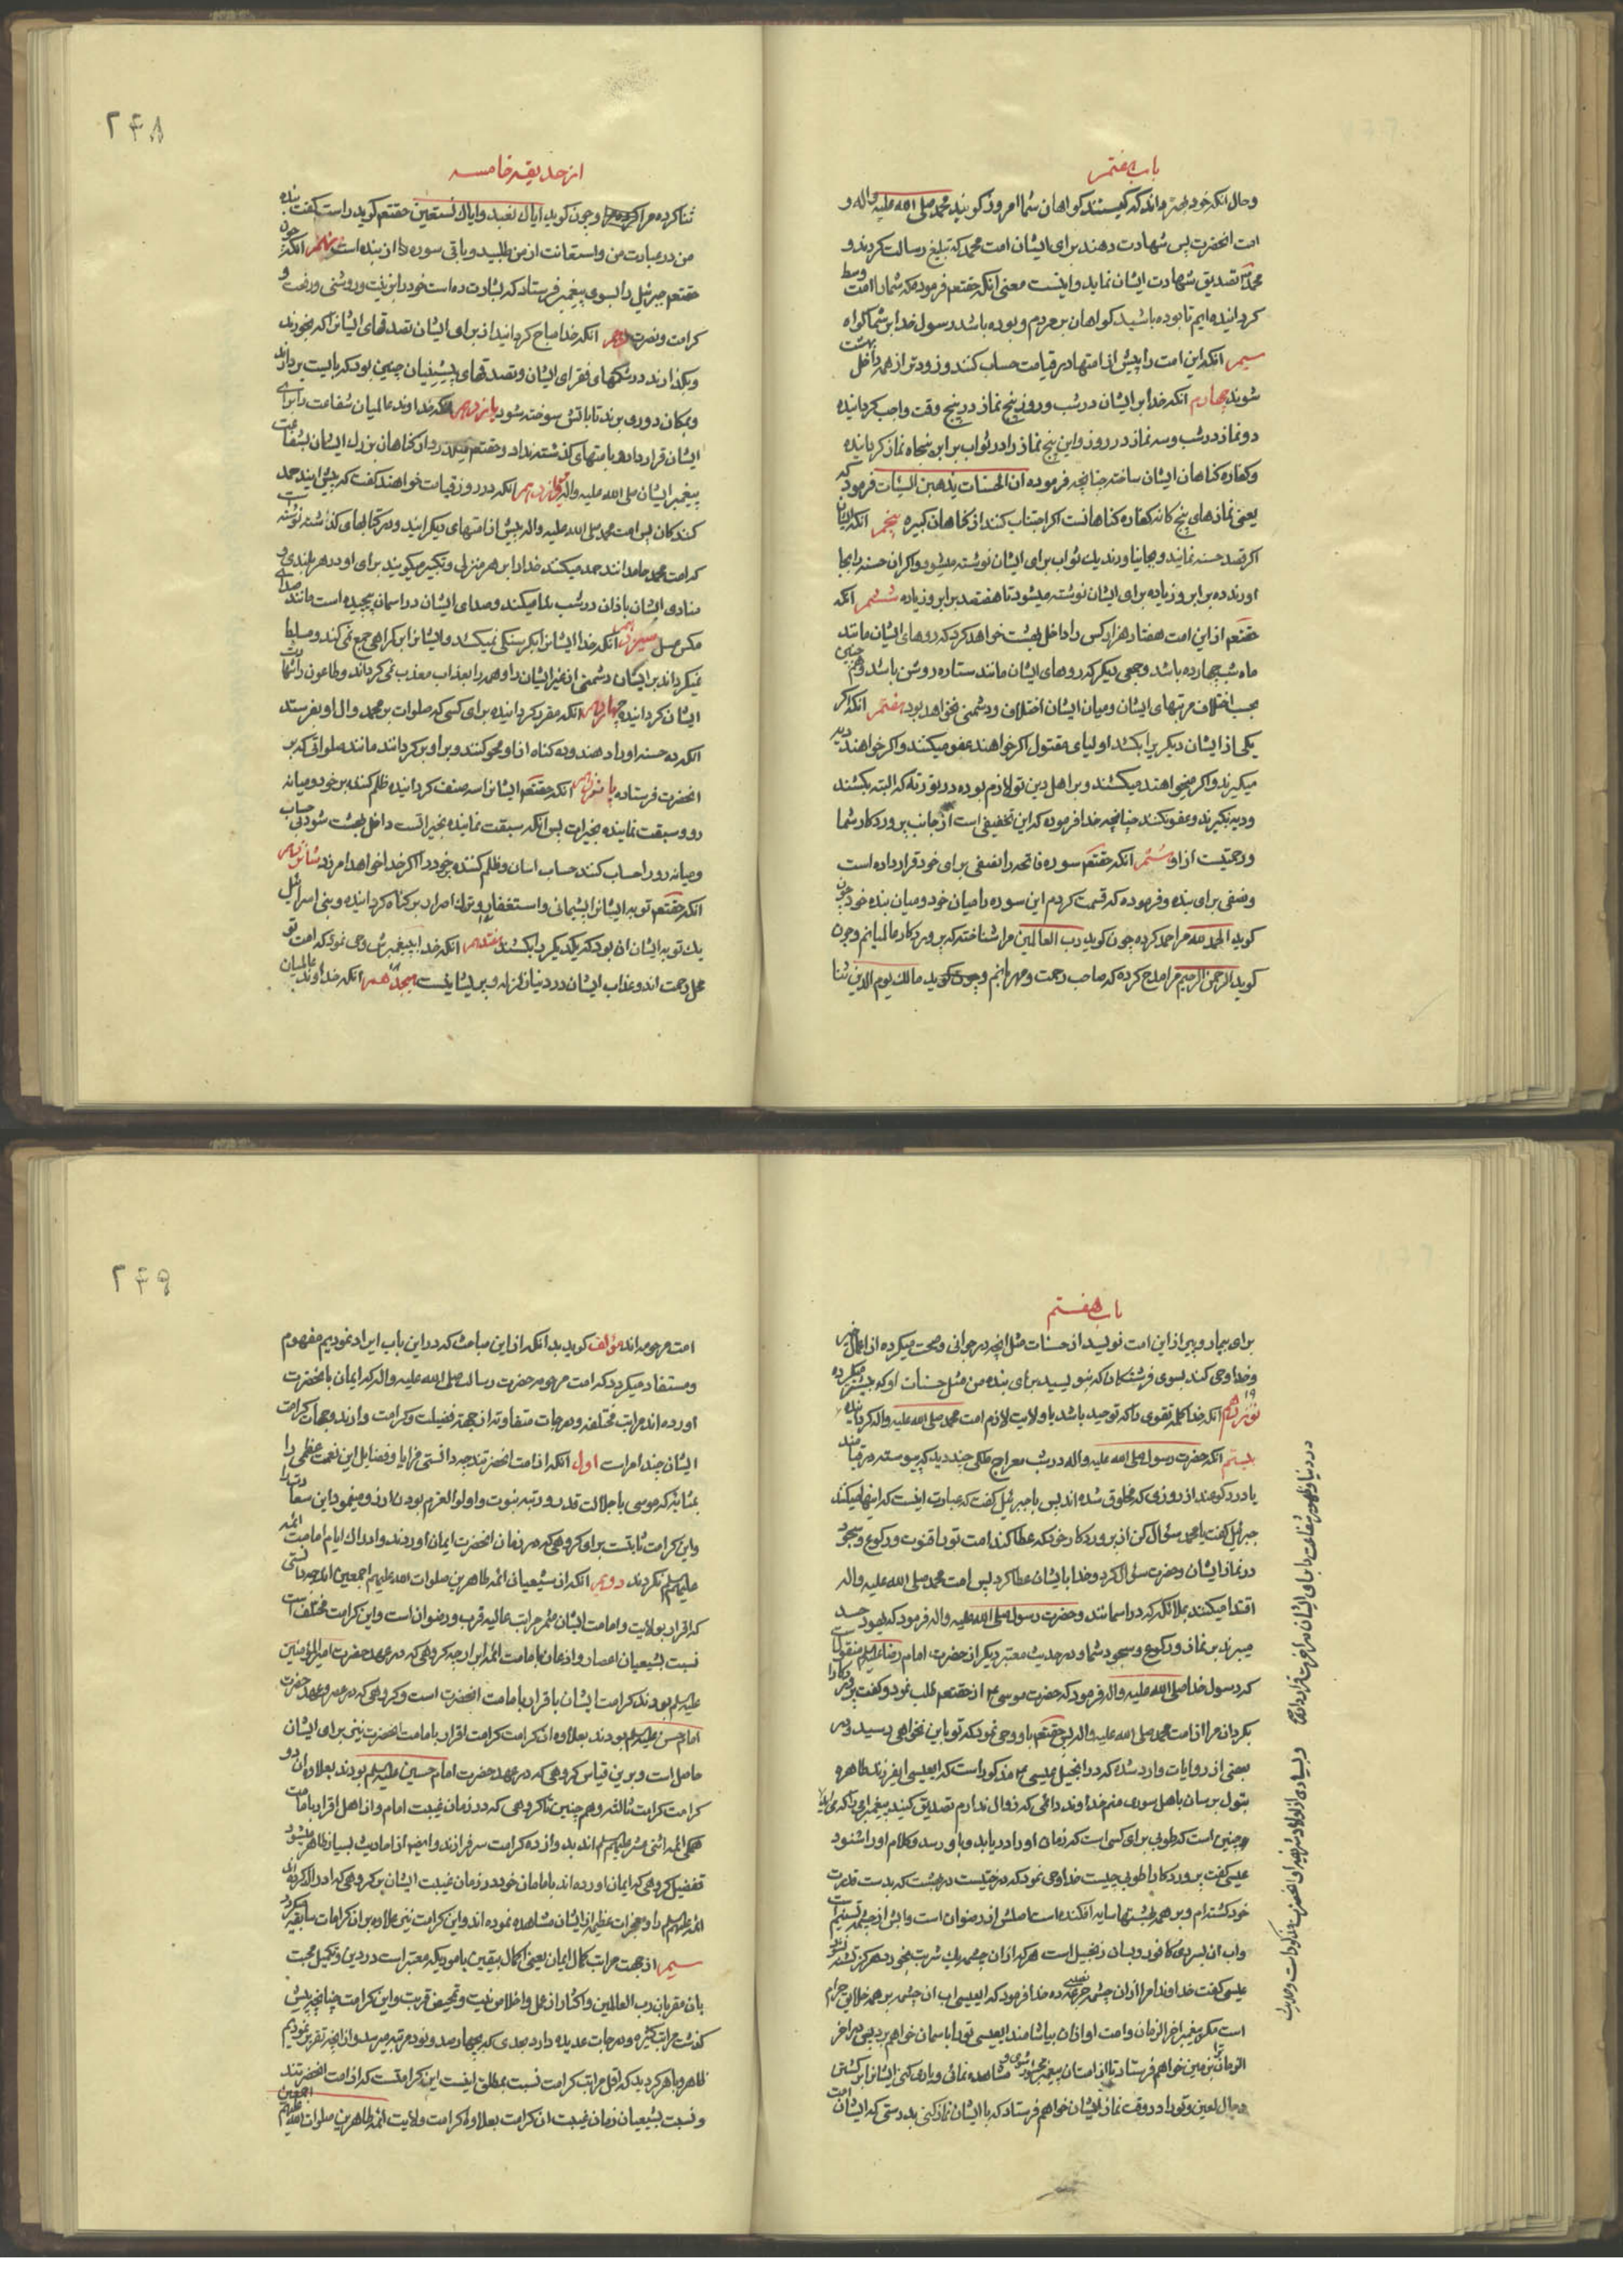 باب هفتم
وحال آنکه خود بهتر داند که کیستند کواهان شما امروز کویند محمد صلی الله علیه واله و
امت انحضرت پس شهادت دهند برای ایشان امت محمد که تبلیغ رسالت کردند و
محمد تصدیق شهادت ایشان نماید واینست معنی انکه حقتعم فرموده که شما را امت وسط
کردانیده ایم تا بوده باشید کواهان بر مردم و بوده باشد رسول خدا بر شما کواه
سیم انکه این امت را پیش از امتها در قیامت حساب کنند و زودتر از همه داخل بهشت
شوند چهارم انکه خدا بر ایشان در شب و روز پنج نماز در پنج وقت واجب کردانیده
دو نماز در شب و سه نماز در روز و این پنج نماز را در ثواب برابر پنجاه نماز کردانیده
وکفاره کناهان ایشان ساخته چنانچه فرموده ان الحسنات یذهبن السیئات فرمود که
یعنی نمازهای پنج کانه کفاره کناهانست اکر اجتناب کنند از کناهان کبیره پنجم انکه ایشان
اکر قصد حسنه نمایند و بجا نیاورند یک ثواب برای ایشان نوشته میشود و اکر ان حسنه را بجا
اورند ده برابر و زیاده برای ایشان نوشته میشود تا هفتصد برابر و زیاده ششم انکه
حقتعم از این امت هفتاد هزار کس را داخل بهشت خواهد کرد که روهای ایشان مانند
ماه شب چهارده باشد و جمعی دیکر که روهای ایشان مانند ستاره روشن باشد و همچنین
بحسب اختلاف مرتبهای ایشان و میان ایشان اختلاف و دشمنی نخواهد بود هفتم انکه اکر
یکی از ایشان دیکریرا بکشد اولیای مقتول اکر خواهند عفو میکنند و اکر خواهند دیه
میکیرند و اکر میخواهند میکشند و بر اهل دین تو لازم بوده در توریة که البته بکشند
و دیه نکیرند و عفو نکنند چنانچه خدا فرموده که این تخفیفی است از جانب پروردکار شما
و رحمتیست از او هشتم انکه حقتعم سوره فاتحه را نصفی برای خود قرار داده است
و نصفی برای بنده و فرموده که قسمت کردم این سوره را میان خود و میان بنده خود چون
کوید الحمد لله مرا حمد کرده چون کوید رب العالمین مرا شناخته که پروردکار عالمیانم و چون
کوید الرحمن الرحیم مرا مدح کرده که صاحب رحمت و مهربانیم و چون کوید مالک یوم الدین ثنا
از حدیقه خامسه
۲۴۸
ثنا کرده مرا و چون کوید ایاک نعبد و ایاک نستعین حقتعم کوید راست کفت بنده
من در عبادت من و استعانت از من طلبید و باقی سوره از بنده است نهم انکه چون
حقتعم جبرئیل را بسوی پیغمبر فرستاد که بشارت ده امت خود را بزینت و روشنی و رفعت و
کرامت و نصرت دهم انکه خدا مباح کردانید از برای ایشان تصدقهای ایشانرا که بخورند
وبکذارند در شکمهای فقرای ایشان و تصدقهای پیشینیان چنین بود که بایست بردارند
وبمکان دوری برند تا باتش سوخته شود یازدهم انکه خداوند عالمیان شفاعت را برای
ایشان قرار داده و بامتهای کذشته نداد و حقتعم میکذرد از کناهان بزرک ایشان بشفاعت
پیغمبر ایشان صلی الله علیه واله دوازدهم انکه در روز قیامت خواهند کفت که پیش ایند حمد
کنندکان پس امت محمد صلی الله علیه واله پیش از امتهای دیکر ایند و در کتابهای کذشته نوشته است
که امت محمد حامدانند حمد میکنند خدا را بر هر منزلی و تکبیر میکویند برای او در هر بلندی و
منادی ایشان باذان در شب ندا میکند و صدای ایشان در اسمان پیچیده است مانند صدای
مکس عسل سیزدهم انکه خدا ایشانرا بکرسنکی نمیکشد و ایشانرا بر کمراهی جمع نمی کند و مسلط
نمیکرداند بر ایشان دشمنی از غیر ایشان را و همه را بعذاب معذب نمی کرداند و طاعون را شهادت
ایشان کردانیده چهاردهم انکه مقرر کردانیده برای کسی که صلوات بر محمد وال او بفرستد
انکه ده حسنه او را دهند و ده کناه از او محو کنند و بر او بر کردانند مانند صلواتی که بر
انحضرت فرستاده پانزدهم انکه حقتعم ایشانرا سه صنف کردانیده ظلم کننده بر خود و میانه
رو و سبقت نماینده بخیرات پس انکه سبقت نماینده بخیراتست داخل بهشت شود بی حساب
ومیانه رو را حساب کنند حساب اسان و ظلم کننده بخود را اکر خدا خواهد امرزد شانزدهم
انکه حقتعم توبه ایشانرا پشیمانی و استغفار و ترک اصرار بر کناه کردانیده و بنی اسرائیل
یک توبه ایشان ان بود که یکدیکر را بکشند هفدهم انکه خدا بپیغمبرش وحی نمود که امت تو
محل رحمت اند و عذاب ایشان در دنیا زلزله و پریشانیست هیجدهم انکه خداوند عالمیان
باب هفتم
برای بیمار و پیر از این امت نویسد از حسنات مثل انچه در جوانی و صحت میکرده از اعمال خیر
وخدا وحی کند بسوی فرشتکان که بنویسید برای بنده من مثل حسنات او که پیشتر میکرده
نوزدهم انکه خدا کلمه تقوی را که توحید باشد یا ولایت لازم امت محمد صلی الله علیه واله کردانیده
بیستم انکه حضرت رسول صلی الله علیه واله در شب معراج ملکی چند دید که پیوسته در قیامند
یا در رکوعند از روزی که مخلوق شده اند پس با جبرئیل کفت که عبادت اینست که اینها میکنند
جبرئیل کفت یا محمد سئوال کن از پروردکار خود که عطا کند امت تو را قنوت و رکوع و سجود
در نماز ایشان و حضرت سئوال کرد و خدا بایشان عطا کرد پس امت محمد صلی الله علیه واله
اقتدا میکنند بملائکه که در اسمانند و حضرت رسول صلی الله علیه واله فرمود که یهود حسد
میبرند بر نماز و رکوع و سجود شما و در حدیث معتبر دیکر از حضرت امام رضا علیه السلام منقولست
که رسول خدا صلی الله علیه واله فرمود که حضرت موسی ع از حقتعم طلب نمود و کفت پروردکارا
بکردان مرا از امت محمد صلی الله علیه واله پس حقتعم باو وحی نمود که تو باین نخواهی رسید و در
بعضی از روایات وارد شده که در انجیل عیسی ع مذکور است که ایعیسی ایفرزند طاهره
بتول برسان باهل سوری منم خداوند دائمی که زوال ندارم تصدیق کنید پیغمبر امی را که
وچنین است که طوبی برای کسی است که زمان او را در یابد و باو رسد و کلام او را شنود
عیسی کفت پروردکارا طوبی چیست خدا وحی نمود که درختیست در بهشت که بدست قدرت
خود کشته ام و بر همه بهشتها سایه افکنده است اصلش از رضوان است و ابش از چشمه تسنیم است
واب ان بسردی کافور و بسان زنجبیل است هر که از ان چشمه یک شربت بخورد هرکز تشنه نشود
عیسی کفت خداوندا مرا از ان چشمه جرعه ده خدا فرمود که ایعیسی اب ان چشمه بر همه خلایق حرام
است مکر پیغمبر اخر الزمان و امت او از ان بیاشامند ایعیسی تو را باسمان خواهم برد پس در اخر
الزمان بزمین خواهم فرستاد تا از امتان پیغمبر مشاهده نمائی و یاری کنی ایشانرا بر کشتن
دجال لعین و تو را در وقت نماز ایشان خواهم فرستاد که با ایشان نماز کنی بدرستی که ایشان امت
۲۴۹
امت مرحومه اند مؤلف کوید بدانکه از این مباحث که در این باب ایراد نمودیم مفهوم
ومستفاد میکردد که امت مرحومه حضرت رسالت صلی الله علیه واله که ایمان بانحضرت
اورده اند مراتب مختلفه و درجات متفاوته از جهة فضیلت و کرامت دارند و جهات کرامت
ایشان چند امر است اول انکه از امت انحضرتند چه دانستی مزایا و فضایل این نعمت عظمی را
بمثابه که موسی با جلالت قدر و رتبه نبوت و اولوا العزم بودن ارزو مینمود این سعادت را
واین کرامت ثابتست برای کروهی که در زمان انحضرت ایمان اوردند و ادراک ایام امامت ائمه
علیهم السلام نکردند دویم انکه از شیعیان ائمه طاهرین صلوات الله علیهم اجمعین اند چه دانستی
که اقرار بولایت و امامت ایشان مثمر مراتب عالیه قرب و رضوان است و این کرامت مختلف است
نسبت بشیعیان اعصار و اذعان بامامت ائمه ابرار چه کروهی که در عهد حضرت امیرالمؤمنین
علیه السلام بودند کرامت ایشان باقرار بامامت انحضرت است و کروهی که در عصر و عهد حضرت
امام حسن علیه السلام بودند بعلاوه ان کرامت کرامت اقرار بامامت انحضرت نیز برای ایشان
حاصل است و برین قیاس کروهی که در عهد حضرت امام حسین علیه السلام بودند بعلاوه ان دو
کرامت کرامت ثالثه و همچنین تا کروهی که در زمان غیبت امام و از اهل اقرار بامامت
همکی ائمه اثنی عشر علیهم السلام اند بدوازده کرامت سرفرازند و ایضا از احادیث بسیار ظاهر میشود
تفضیل کروهی که ایمان اورده اند بامامان خود در زمان غیبت ایشان بر کروهی که ادراک کرده اند
ائمه علیهم السلام را و معجزات عظیمه از ایشان مشاهده نموده اند و این کرامت نیز علاوه بر ان کرامات سابقه میکردد
سیم از جهت مراتب کمال ایمان یعنی کمال یقین بامور دیکه معتبر است در دین و تکمیل محبت
بان مقربان رب العالمین و اکثار از عمل و اخلاص نیت و تمحیض قربت و این کرامت چنانچه پیش
کذشت مراتب کثیره و درجات عدیده دارد بعدی که بچهار صد و نود مرتبه میرسد و از انچه تقریر نمودیم
ظاهر و باهر کردید که اقل مراتب کرامت نسبت بمطلق امت این کرامتست که از امت انحضرتند
و نسبت بشیعیان زمان غیبت ان کرامت بعلاوه کرامت ولایت ائمه طاهرین صلوات الله علیهم اجمعین